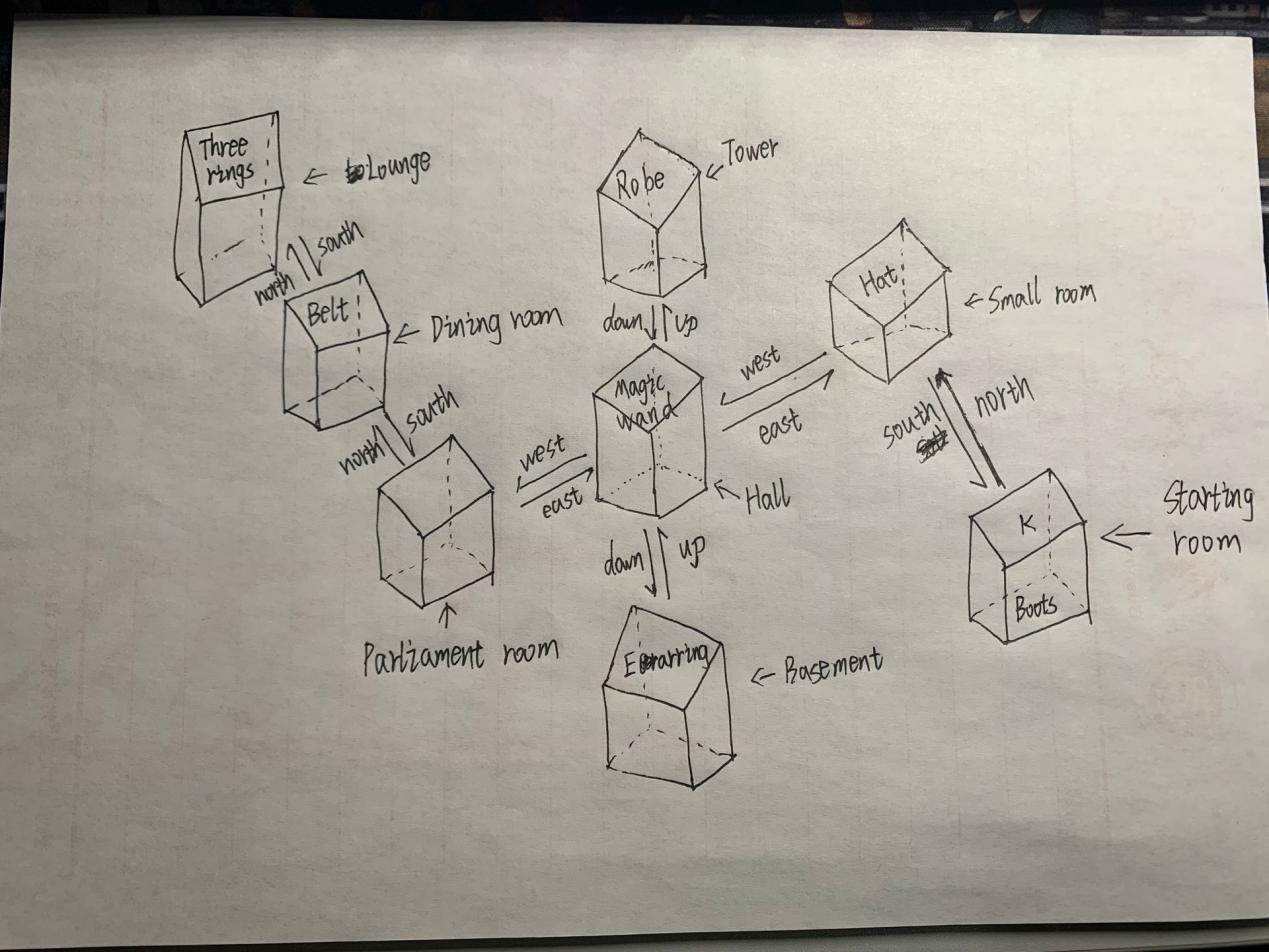 Three
rings
← Lounge
north
south
Belt
← Dining room
north
south
Parliament room
west
east
Robe
← Tower
down
up
Magic
wand
Hall
down
up
Earring
← Basement
west
east
Hat
← Small room
south
north
K
Boots
← Starting
room